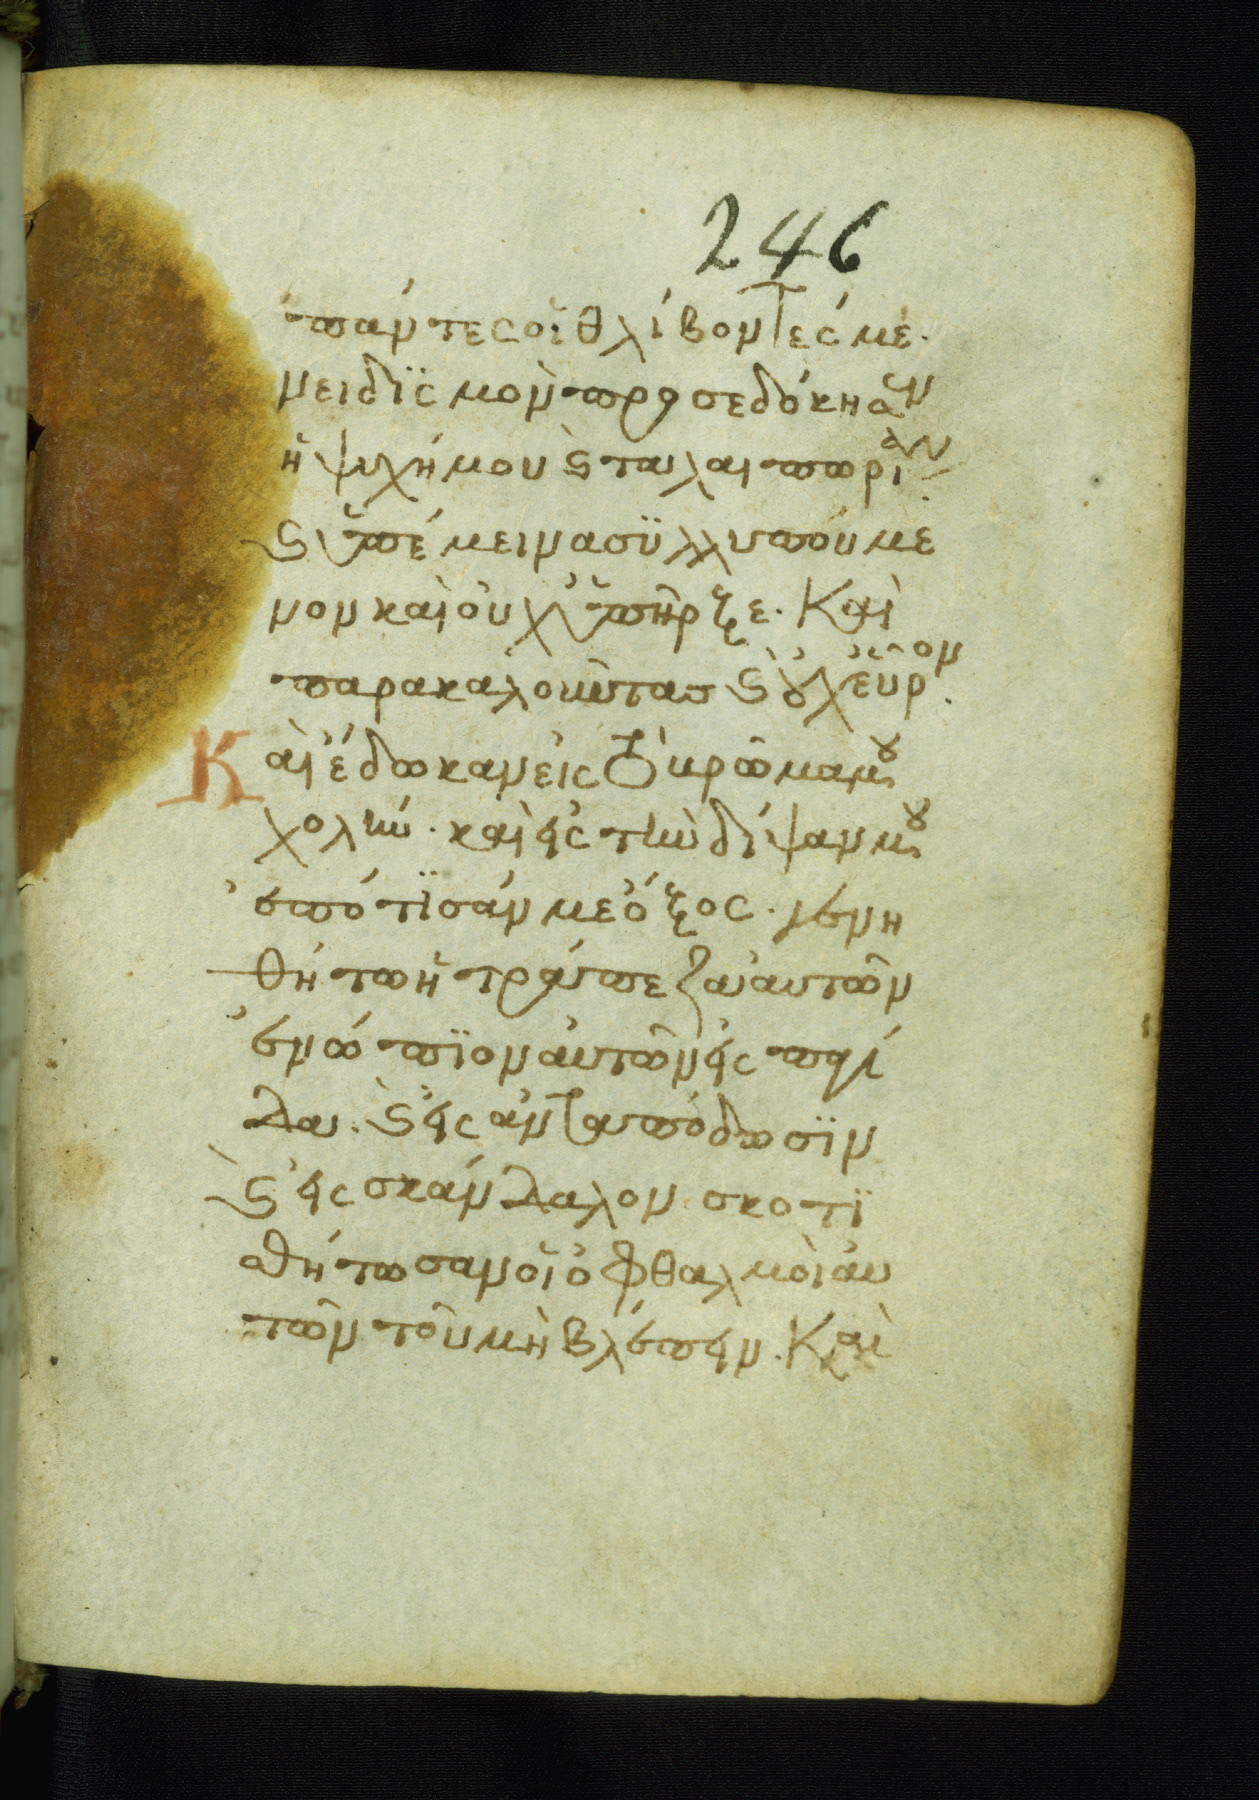 246
πάντες οἱ θλίβοντές με.
νειδϊσμὸν προσεδόκησεν
ἡ ψυχή μου ϛ ταλαιπωρίαν
ϛ ὑπέμεινα συλλυπούμε
νον καὶ οὐχ ὑπῆρξε. Καὶ
παρακαλοῦντας ϛ οὐχ εὗρον.
Καὶ ἔδωκαν εἰς τὸ βρῶμα μου
χολήν. καὶ εἰς τὴν δίψαν μου
ἐπότισάν με ὄξος. γενη
θήτω ἡ τράπεζα αὐτῶν
ἐνώπϊον αὐτῶν εἰς παγί
δα. ϛ εἰς ἀνταπόδωσϊν
ϛ εἰς σκάνδαλον σκοτϊ
σθήτωσαν οἱ ὀφθαλμοὶ αὐ
τῶν τοῦ μὴ βλέπειν. Καὶ